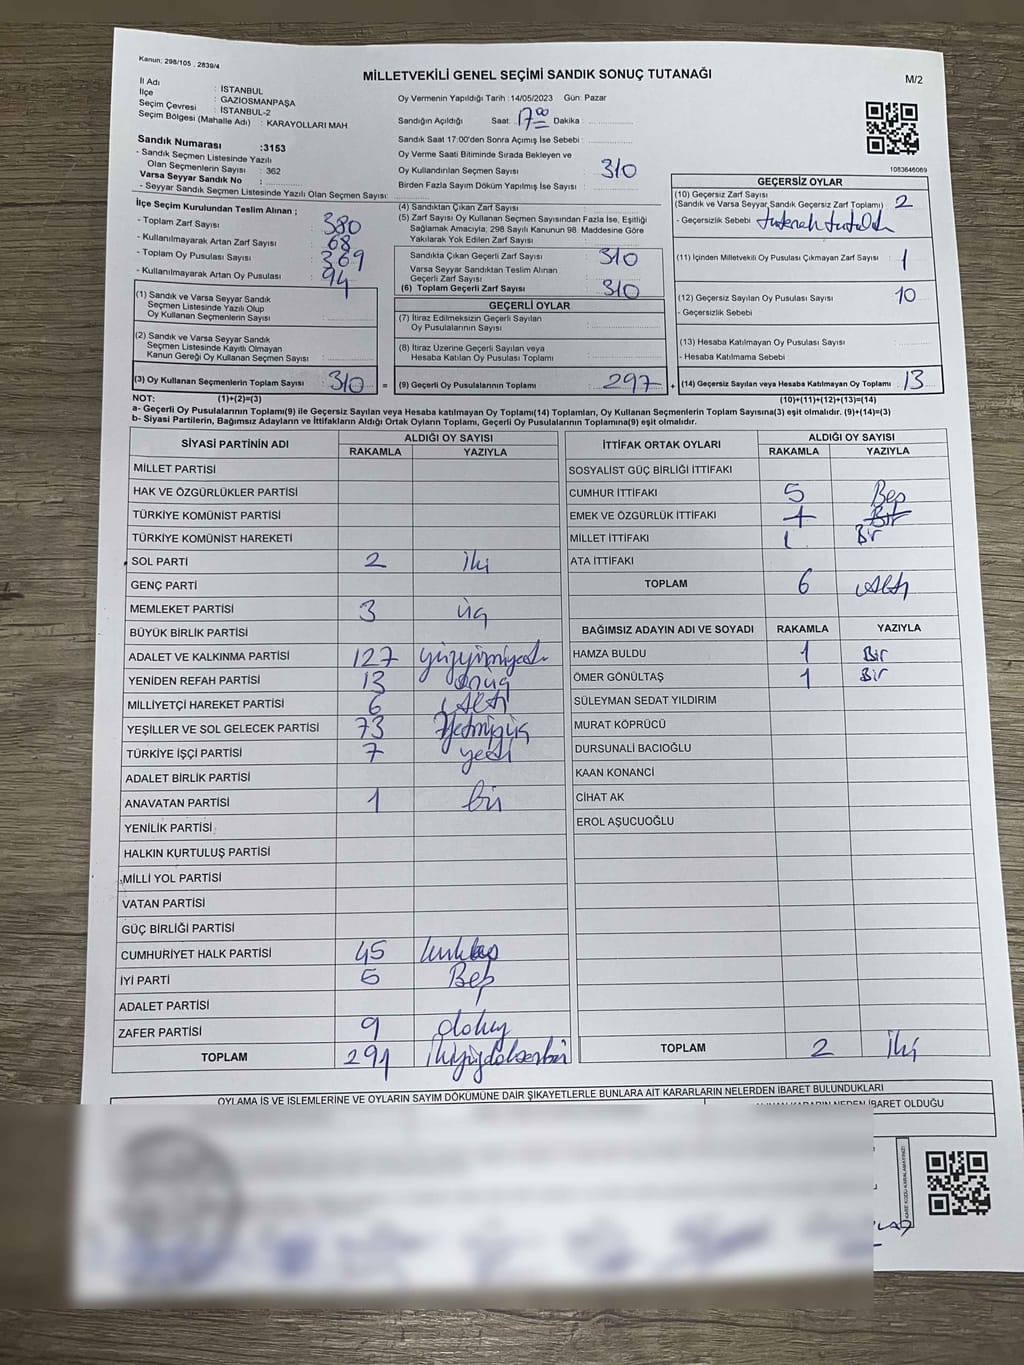 Kanun: 298/105 , 2839/4
MİLLETVEKİLİ GENEL SEÇİMİ SANDIK SONUÇ TUTANAĞI
M/2
İl Adı : İSTANBUL
İlçe : GAZİOSMANPAŞA
Seçim Çevresi : İSTANBUL-2
Seçim Bölgesi (Mahalle Adı) : KARAYOLLARI MAH
Sandık Numarası :3153
- Sandık Seçmen Listesinde Yazılı
Olan Seçmenlerin Sayısı : 362
Varsa Seyyar Sandık No :
- Seyyar Sandık Seçmen Listesinde Yazılı Olan Seçmen Sayısı:
Oy Vermenin Yapıldığı Tarih :14/05/2023 Gün: Pazar
Sandığın Açıldığı Saat: 17:00 Dakika :
Sandık Saat 17:00'den Sonra Açımış İse Sebebi :
Oy Verme Saati Bitiminde Sırada Bekleyen ve
Oy Kullandırılan Seçmen Sayısı 310
Birden Fazla Sayım Döküm Yapılmış İse Sayısı :
1083646069
İlçe Seçim Kurulundan Teslim Alınan ;
- Toplam Zarf Sayısı : 380
- Kullanılmayarak Artan Zarf Sayısı : 68
- Toplam Oy Pusulası Sayısı : 369
- Kullanılmayarak Artan Oy Pusulası : 94
(1) Sandık ve Varsa Seyyar Sandık
Seçmen Listesinde Yazılı Olup
Oy Kullanan Seçmenlerin Sayısı :
(2) Sandık ve Varsa Seyyar Sandık
Seçmen Listesinde Kayıtlı Olmayan
Kanun Gereği Oy Kullanan Seçmen Sayısı :
(3) Oy Kullanan Seçmenlerin Toplam Sayısı 310 =
(4) Sandıktan Çıkan Zarf Sayısı :
(5) Zarf Sayısı Oy Kullanan Seçmen Sayısından Fazla İse, Eşitliği
Sağlamak Amacıyla; 298 Sayılı Kanunun 98. Maddesine Göre
Yakılarak Yok Edilen Zarf Sayısı :
Sandıkta Çıkan Geçerli Zarf Sayısı : 310
Varsa Seyyar Sandıktan Teslim Alınan
Geçerli Zarf Sayısı :
(6) Toplam Geçerli Zarf Sayısı : 310
GEÇERLİ OYLAR
(7) İtiraz Edilmeksizin Geçerli Sayılan
Oy Pusulalarının Sayısı :
(8) İtiraz Üzerine Geçerli Sayılan veya
Hesaba Katılan Oy Pusulası Toplamı :
(9) Geçerli Oy Pusulalarının Toplamı : 297 +
GEÇERSİZ OYLAR
(10) Geçersiz Zarf Sayısı
(Sandık ve Varsa Seyyar Sandık Geçersiz Zarf Toplamı) : 2
- Geçersizlik Sebebi :
(11) İçinden Milletvekili Oy Pusulası Çıkmayan Zarf Sayısı : 1
(12) Geçersiz Sayılan Oy Pusulası Sayısı : 10
- Geçersizlik Sebebi
(13) Hesaba Katılmayan Oy Pusulası Sayısı :
- Hesaba Katılmama Sebebi
(14) Geçersiz Sayılan veya Hesaba Katılmayan Oy Pusulası Toplamı : 13
NOT: (1)+(2)=(3) (10)+(11)+(12)+(13)=(14)
a- Geçerli Oy Pusulalarının Toplamı(9) ile Geçersiz Sayılan veya Hesaba katılmayan Oy Toplamı(14) Toplamları, Oy Kullanan Seçmenlerin Toplam Sayısına(3) eşit olmalıdır. (9)+(14)=(3)
b- Siyasi Partilerin, Bağımsız Adayların ve İttifakların Aldığı Ortak Oyların Toplamı, Geçerli Oy Pusulalarının Toplamına(9) eşit olmalıdır.
SİYASİ PARTİNİN ADI ALDIĞI OY SAYISI
RAKAMLA YAZIYLA
MİLLET PARTİSİ
HAK VE ÖZGÜRLÜKLER PARTİSİ
TÜRKİYE KOMÜNİST PARTİSİ
TÜRKİYE KOMÜNİST HAREKETİ
SOL PARTİ 2 iki
GENÇ PARTİ
MEMLEKET PARTİSİ 3 üç
BÜYÜK BİRLİK PARTİSİ
ADALET VE KALKINMA PARTİSİ 127 yüzyirmiyedi
YENİDEN REFAH PARTİSİ 13 onüç
MİLLİYETÇİ HAREKET PARTİSİ 6 Altı
YEŞİLLER VE SOL GELECEK PARTİSİ 73 Yetmişüç
TÜRKİYE İŞÇİ PARTİSİ 7 yedi
ADALET BİRLİK PARTİSİ
ANAVATAN PARTİSİ 1 bir
YENİLİK PARTİSİ
HALKIN KURTULUŞ PARTİSİ
MİLLİ YOL PARTİSİ
VATAN PARTİSİ
GÜÇ BİRLİĞİ PARTİSİ
CUMHURİYET HALK PARTİSİ 45 kırkbeş
İYİ PARTİ 5 Beş
ADALET PARTİSİ
ZAFER PARTİSİ 9 dokuz
TOPLAM 291 ikiyüzdoksanbir
İTTİFAK ORTAK OYLARI ALDIĞI OY SAYISI
RAKAMLA YAZIYLA
SOSYALİST GÜÇ BİRLİĞİ İTTİFAKI
CUMHUR İTTİFAKI 5 Beş
EMEK VE ÖZGÜRLÜK İTTİFAKI 1 Bir
MİLLET İTTİFAKI 1 Bir
ATA İTTİFAKI
TOPLAM 6 Altı
BAĞIMSIZ ADAYIN ADI VE SOYADI RAKAMLA YAZIYLA
HAMZA BULDU 1 Bir
ÖMER GÖNÜLTAŞ 1 Bir
SÜLEYMAN SEDAT YILDIRIM
MURAT KÖPRÜCÜ
DURSUNALİ BACIOĞLU
KAAN KONANCİ
CİHAT AK
EROL AŞUCUOĞLU
TOPLAM 2 iki
OYLAMA İŞ VE İŞLEMLERİNE VE OYLARIN SAYIM DÖKÜMÜNE DAİR ŞİKAYETLERLE BUNLARA AİT KARARLARIN NELERDEN İBARET BULUNDUKLARI
ALINAN KARARIN NEDEN İBARET OLDUĞU